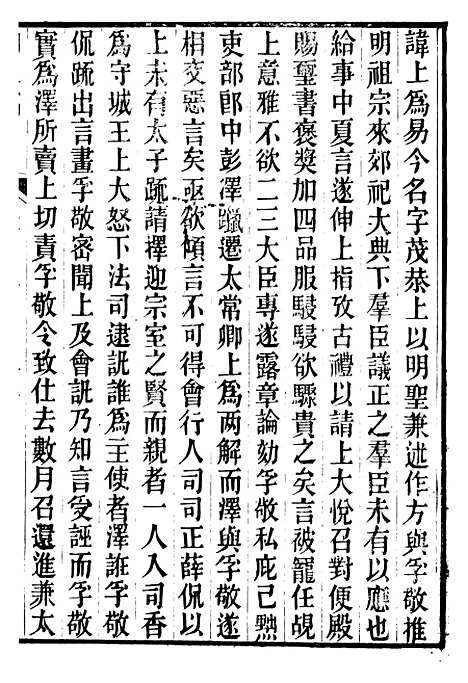 諱上爲易今名字茂恭上以明聖兼述作方與孚敬推
明祖宗來郊祀大典下羣臣議正之羣臣未有以應也
給事中夏言遂伸上指攷古禮以請上大悅召對便殿
賜璽書褒奬加四品服駸駸欲驟貴之矣言被寵任覘
上意雅不欲二三大臣專遂露章論劾孚敬私庇己㸃
吏部郎中彭澤躐遷太常卿上爲两解而澤與孚敬遂
相交惡言矣亟欲傾言不可得會行人司司正薛侃以
上未有太子疏請擇迎宗室之賢而親者一人入司香
爲守城王上大怒下法司逮訊誰爲主使者澤誑孚敬
侃疏出言畫孚敬密聞上及會訊乃知言受誣而孚敬
實爲澤所賣上切責孚敬令致仕去數月召還進兼太